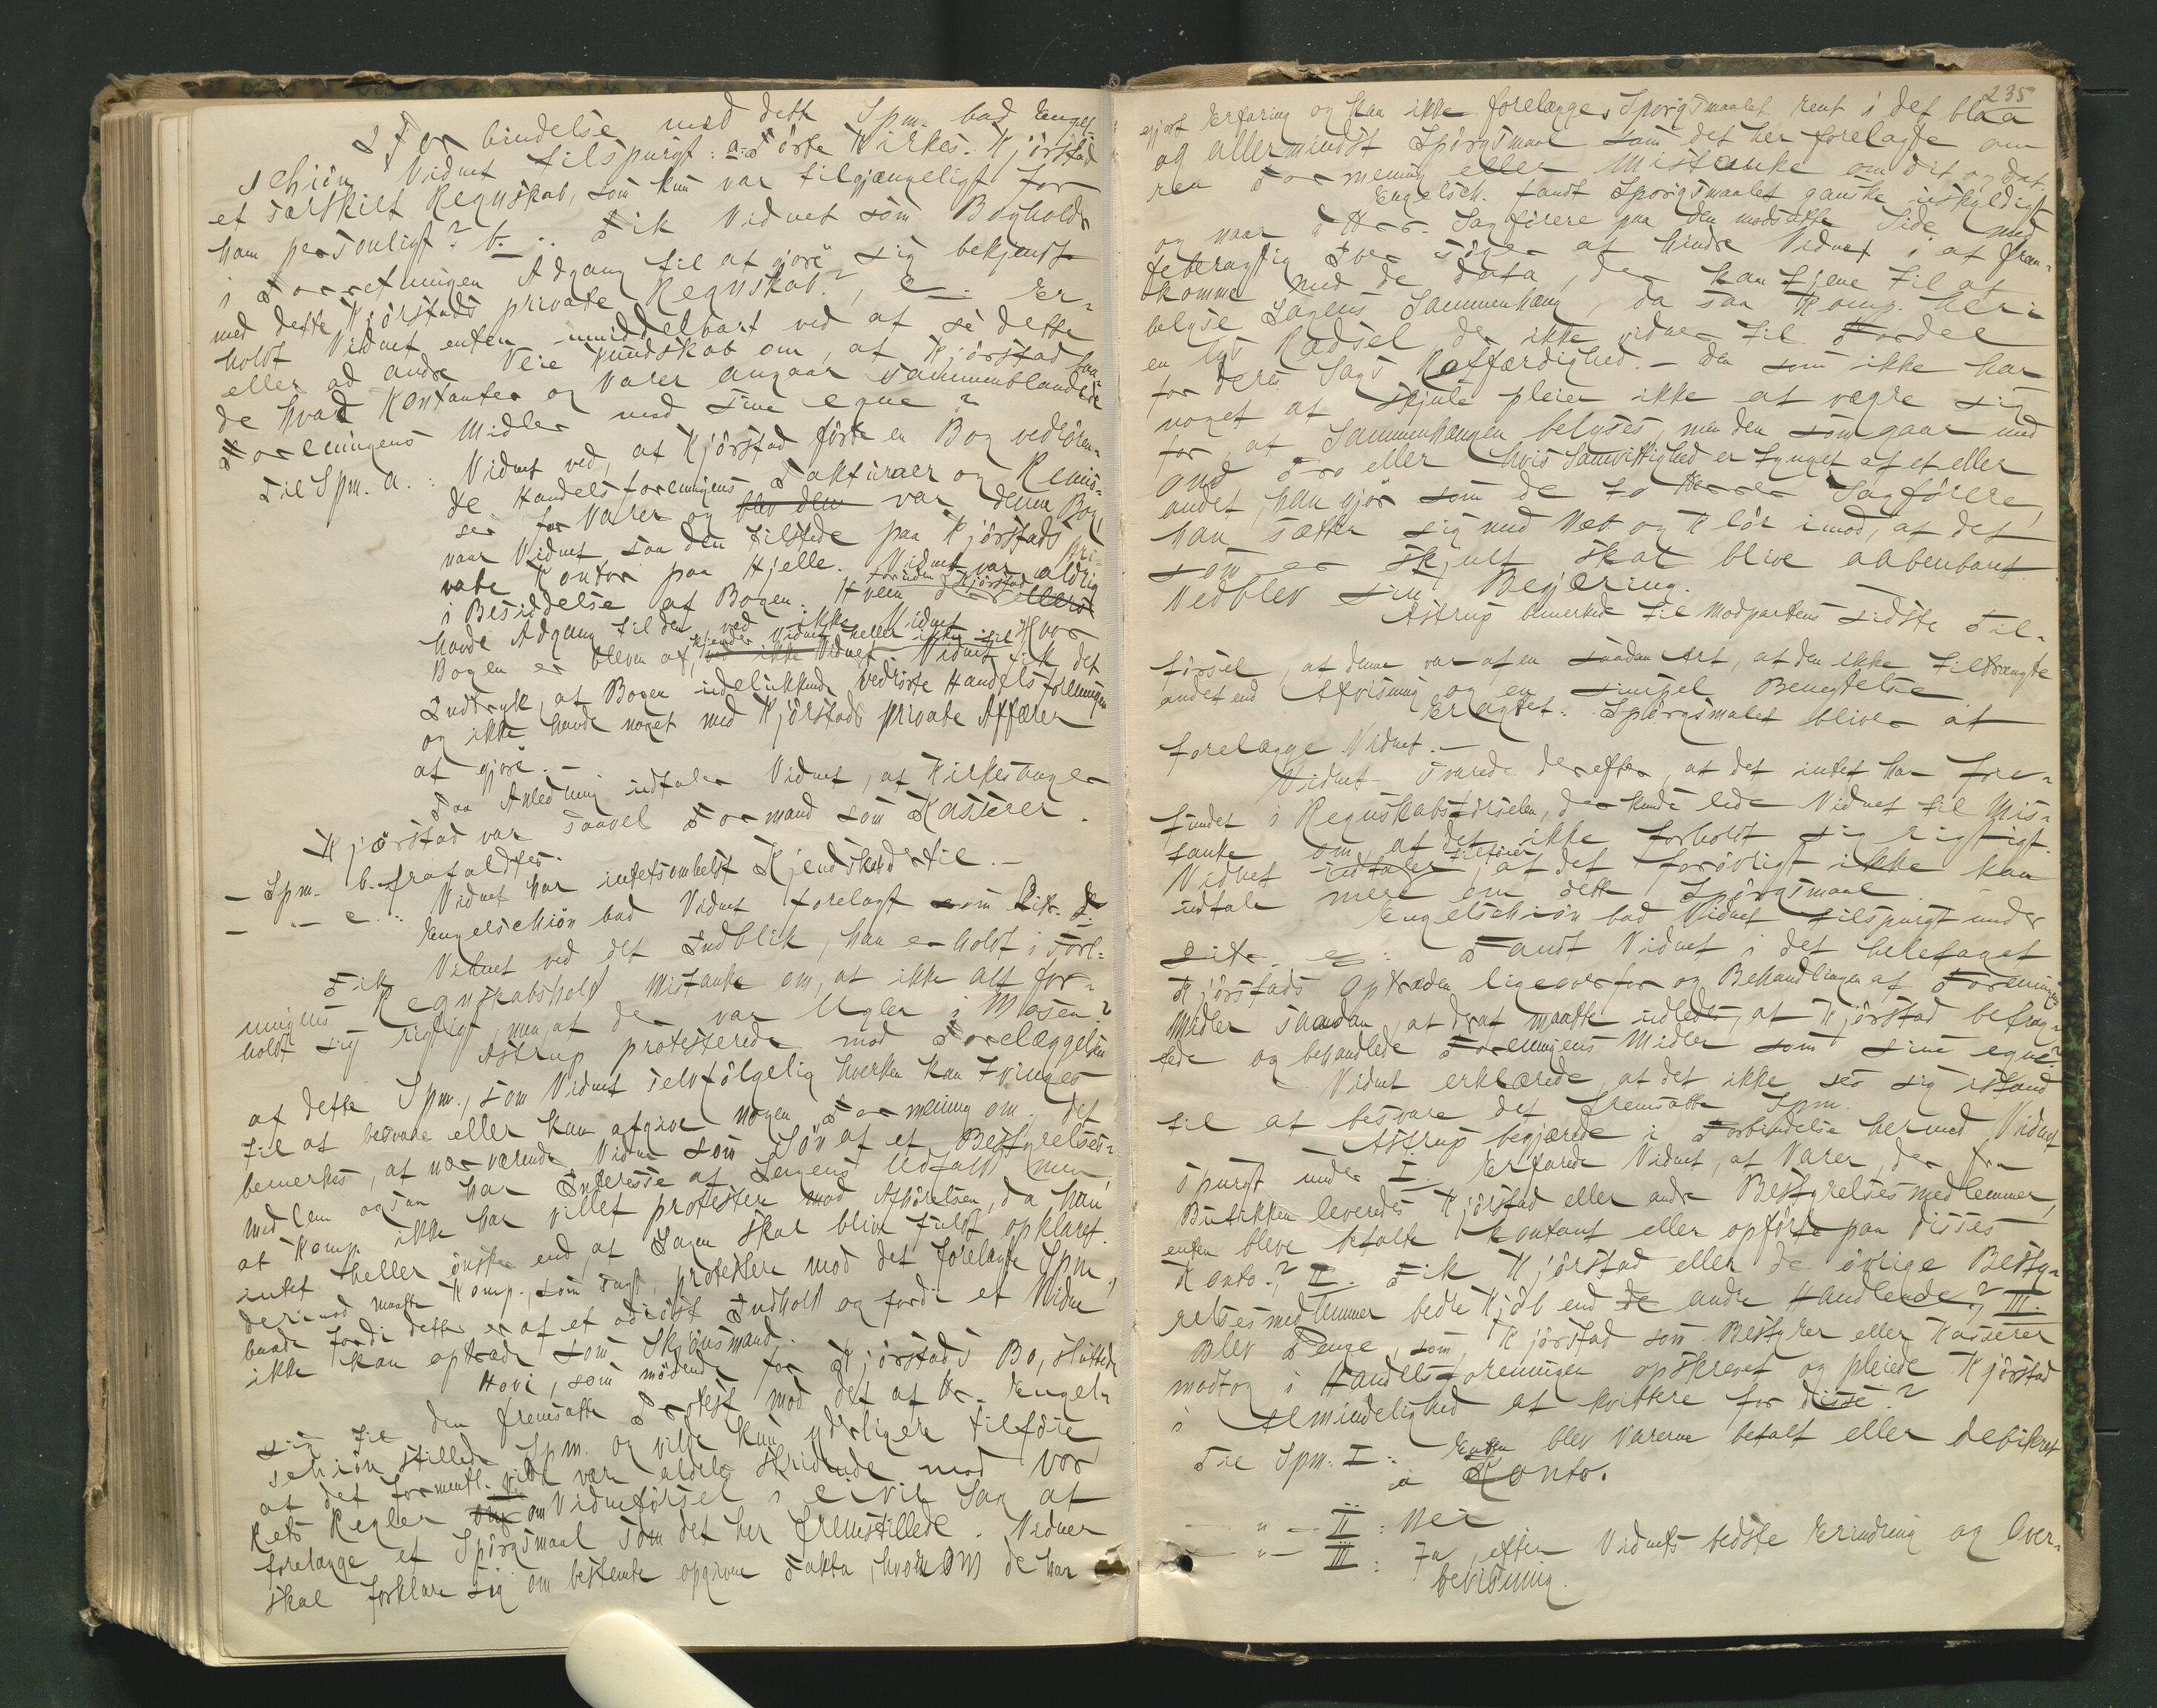 I Forbindelse med dette Spm. bad Engel-
schiön Vidnet tilspurgt: a. Förte Kirkes. Kjörstad
et særskilt Regnskab, som kun var tilgjængeligt for
ham personligt? b. .. Fik Vidnet som Bogholder
i Forretningen Adgang til at gjöre sig bekjendt
med dette Kjörstads private Regnskab?, c. Er-
holdt Vidnet enten umiddelbart ved at se dette
eller ad andre Veie Kundskab om, at Kjörstad baa-
de hvad Kontanter og Varer angaar sammenblandede
Foreningens Midler med sine egne?
Til Spm. a.: Vidnet ved, at Kjörstad förte en Bog vedrören-
de Handelsforeningens Fakturaer og Remis-
ser for Varer og blev den var denne Bog,
naar Vidnet saa den tilstede paa Kjörstads pri-
vate Kontor paa Hjelle. Vidnet var aldrig
i Besiddelse af Bogen. Hvem foruden Kjörstad der ellers
havde Adgang til den ved ikke Vidnet. Hvor
Bogen er bleven af, kjender Vidnet heller ikke til ved ikke Vidnet. Vidnet fik det
Indtryk, at Bogen udelukkende vedrörte Handelsforeningen
og ikke havde noget med Kjörstads private Affærer
at gjöre. -
Paa Anledning udtaler Vidnet, at Kirkesanger
Kjörstad var saavel Formand som Kasserer.
- Spm. b. frafaldtes.
- " - c.: Vidnet har intetsomhelst Kjendskab dertil. -
Engelschiön bad Vidnet forelagt som Litr. d:
Fik Vidnet ved det Indblik, han erholdt i Fore-
ningens Regnskabshold Mistanke om, at ikke alt for-
holdt sig rigtigt, men at der var Ugler i Mosen?
Astrup protesterede mod Forelæggelsen
af dette Spm., som Vidnet selvfölgelig hverken kan tvinges
til at besvare eller kan afgive nogen Formening om. Det
bemerkes, at nærværende Vidne som Sön af et Bestyrelses-
medlem ogsaa har Interesse af Sagens Udfald, men
at Komp. ikke har villet protestere mod Afhörelsen, da han
intet heller önsker end, at Sagen skal blive fuldt opklaret.
derimod maatte Komp., som sagt, protestere mod det forelagte Spm.,
baade fordi dette er af et odiöst Indhold og fordi et Vidne
ikke kan optræde som Skjönsmand.
Hovi, som mödende for Kjörstads Bo, sluttede
sig til den fremsatte Protest mod det af Hr. Engel-
schiön stillede Spm. og vilde kun yderligere tilföie
at det formentl. vilde være aldeles stridende mod vor
Rets Regler om Vidneförsel i civile Sag at
forelægge et Spörgsmaal som det her fremstillede. Vidner
skal forklare sig om bestemte opgivne Fakta, hvorom de har
235
gjort Erfaring og kan ikke forelægges Spörgsmaalet rent i det blaa
og allermindst Spörgsmaal som det her forelagte om
ren Formening eller Mistanke om dit og dat.
Engelsch. fandt Spörgsmaalet ganske uskyldigt
og naar d'Hrr. Sagförere paa den modsatte Side med
febragtig Iver söger at hindre Vidnet i at frem-
komme med de data, der kan tjene til at
belyse Sagens Sammenhæng, da saa Komp. heri
en lys Rædsel der ikke vidner til Fordel
for deres Sags Retfærdighed. - Den som ikke har
noget at skjule pleier ikke at vægre sig
for, at Sammenhængen belyses, men den som gaar med
ond Tro eller hvis Samvittighed er tynget af et eller
andet, han gjör som de to Herrer Sagförere,
han sætter sig med Næb og Klör imod, at det
som er skjult skal blive aabenbaret.
Vedblev sin Begjæring.
Astrup bemerkede til Modpartens sidste Til-
försel, at denne var af en saadan Art, at den ikke tiltrængte
andet end Afvisning og en simpel Benegtelse.
Eragtet: Spörgsmalet bliver at
forelægge Vidnet. -
Vidnet svarede derefter, at det intet har fore-
fundet i Regnskabsförselen, der kunde lede Vidnet til Mis-
tanke om, at det ikke forholdt sig rigtigt.
Vidnet udtaler tilföier, at det forövrigt ikke kan
udtale mere om dette Spörgsmaal.
Engelschiön bad Vidnet tilspurgt under
Litr. e: Fandt Vidnet i det heletaget
Kjörstads Optræden ligeoverfor og Behandlingen af Foreningens
Midler saadan, at deraf maatte udledes, at Kjörstad betrag-
tede og behandlede Foreningens Midler som sine egne?
Vidnet erklærede, at det ikke ser sig istand
til at besvare det fremsatte Spm.
Astrup begjærede i Forbindelse hermed Vidnet
spurgt under I. Erfarede Vidnet, at Varer, der fra
Butikken leveredes Kjörstad eller andre Bestyrelsesmedlemmer,
enten bleve betalte kontant eller opförte paa disses
Konto.? II. Fik Kjörstad eller de övrige Besty-
relsesmedlemmer bedre Kjöb end de andre Handlende?, III.
Blev Penge, som Kjörstad som Bestyrer eller Kasserer
modtog i Handelsforeningen opskrevet og pleiede Kjörstad
i Almindelighed at kvittere for disse?
Til Spm. I: Enten blev Varerne betalt eller debiteret
à Konto.
- " - II: Nei
- " - III: Ja, efter Vidnets bedste Erindring og Over-
bevisning.